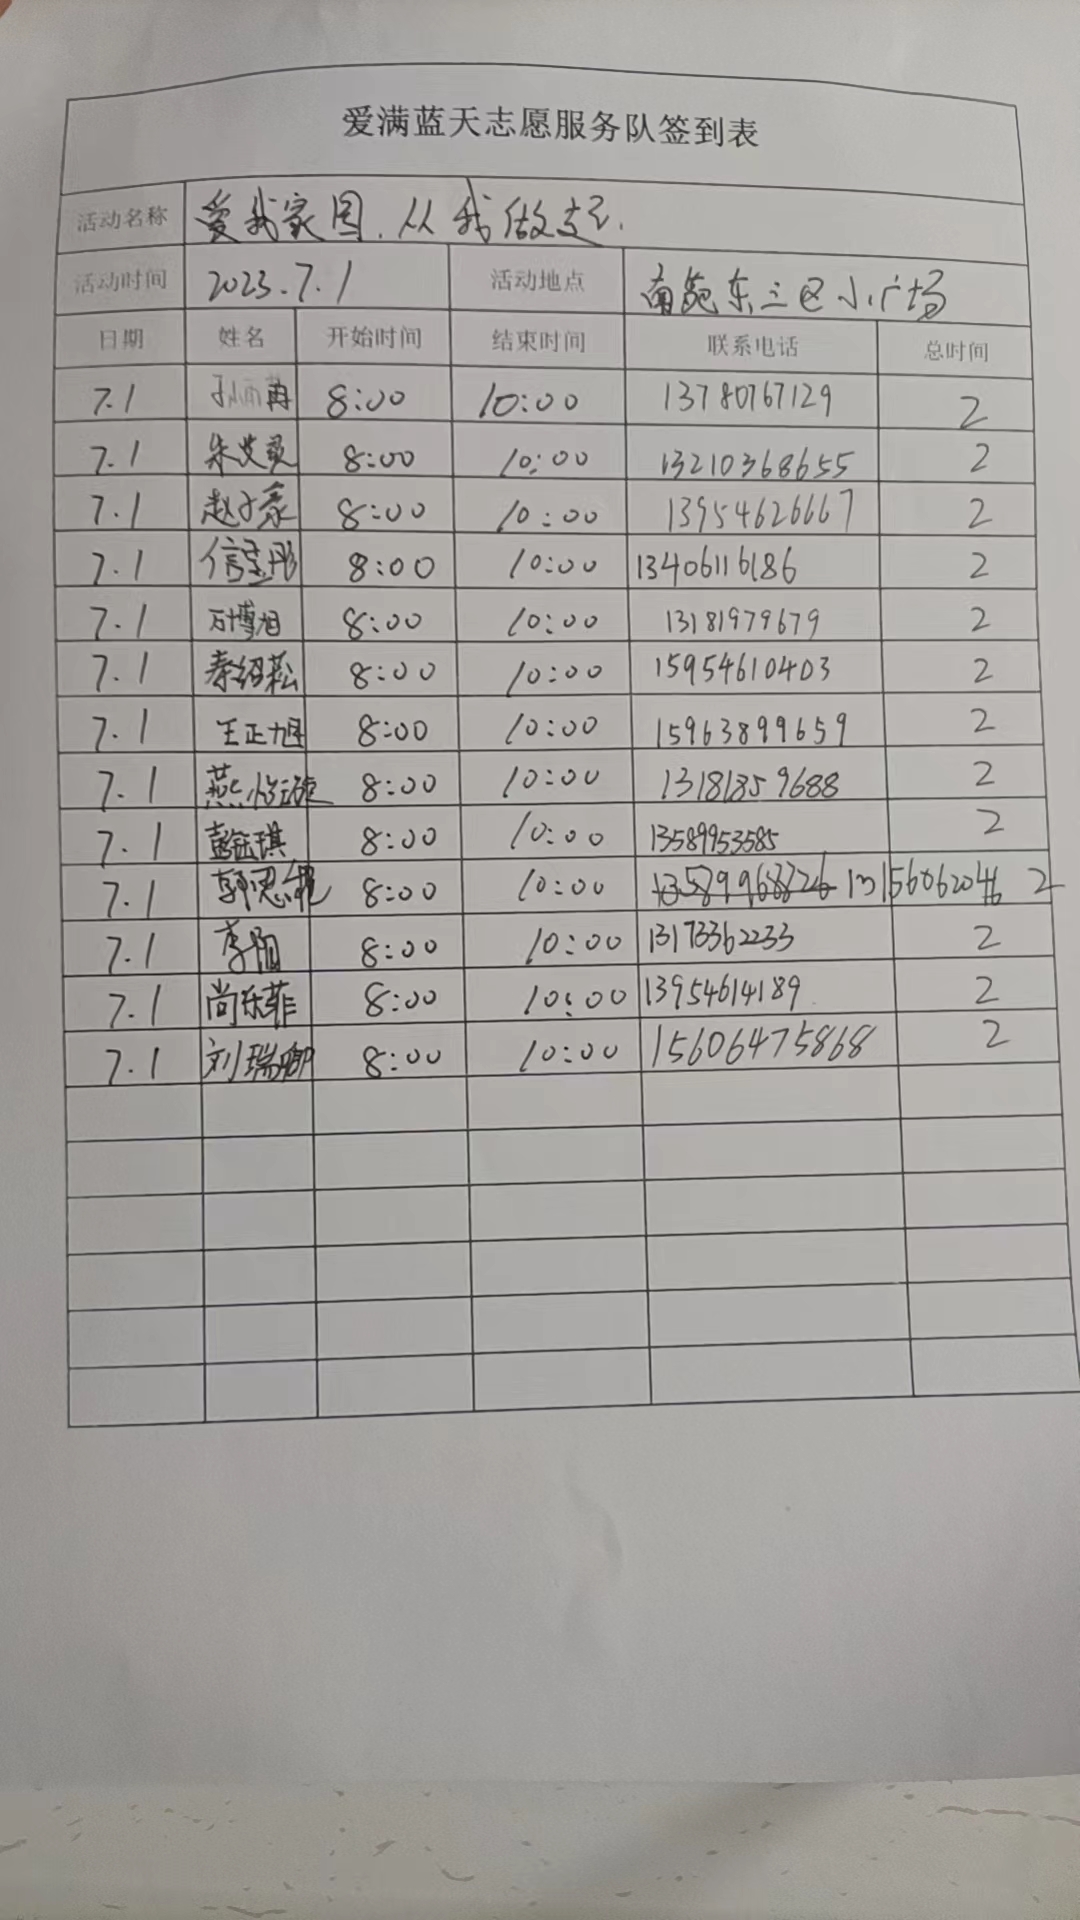 爱满蓝天志愿服务队签到表
活动名称 爱我家园.从我做起.
活动时间 2023.7.1 活动地点 南苑东三区小广场
日期 姓名 开始时间 结束时间 联系电话 总时间
7.1 8:00 10:00 13780767129 2
7.1 朱艾灵 8:00 10:00 13210368655 2
7.1 赵子豪 8:00 10:00 13954626667 2
7.1 信呈彤 8:00 10:00 13406116186 2
7.1 8:00 10:00 13181979679 2
7.1 秦绍菘 8:00 10:00 15954610403 2
7.1 王正旭 8:00 10:00 15963899659 2
7.1 燕 8:00 10:00 13181859688 2
7.1 彭钰琪 8:00 10:00 13589953585 2
7.1 郭思 8:00 10:00 13589968726 13156062046 2
7.1 李阳 8:00 10:00 13173362233 2
7.1 尚乐菲 8:00 10:00 13954614189 2
7.1 刘瑞卿 8:00 10:00 15606475868 2